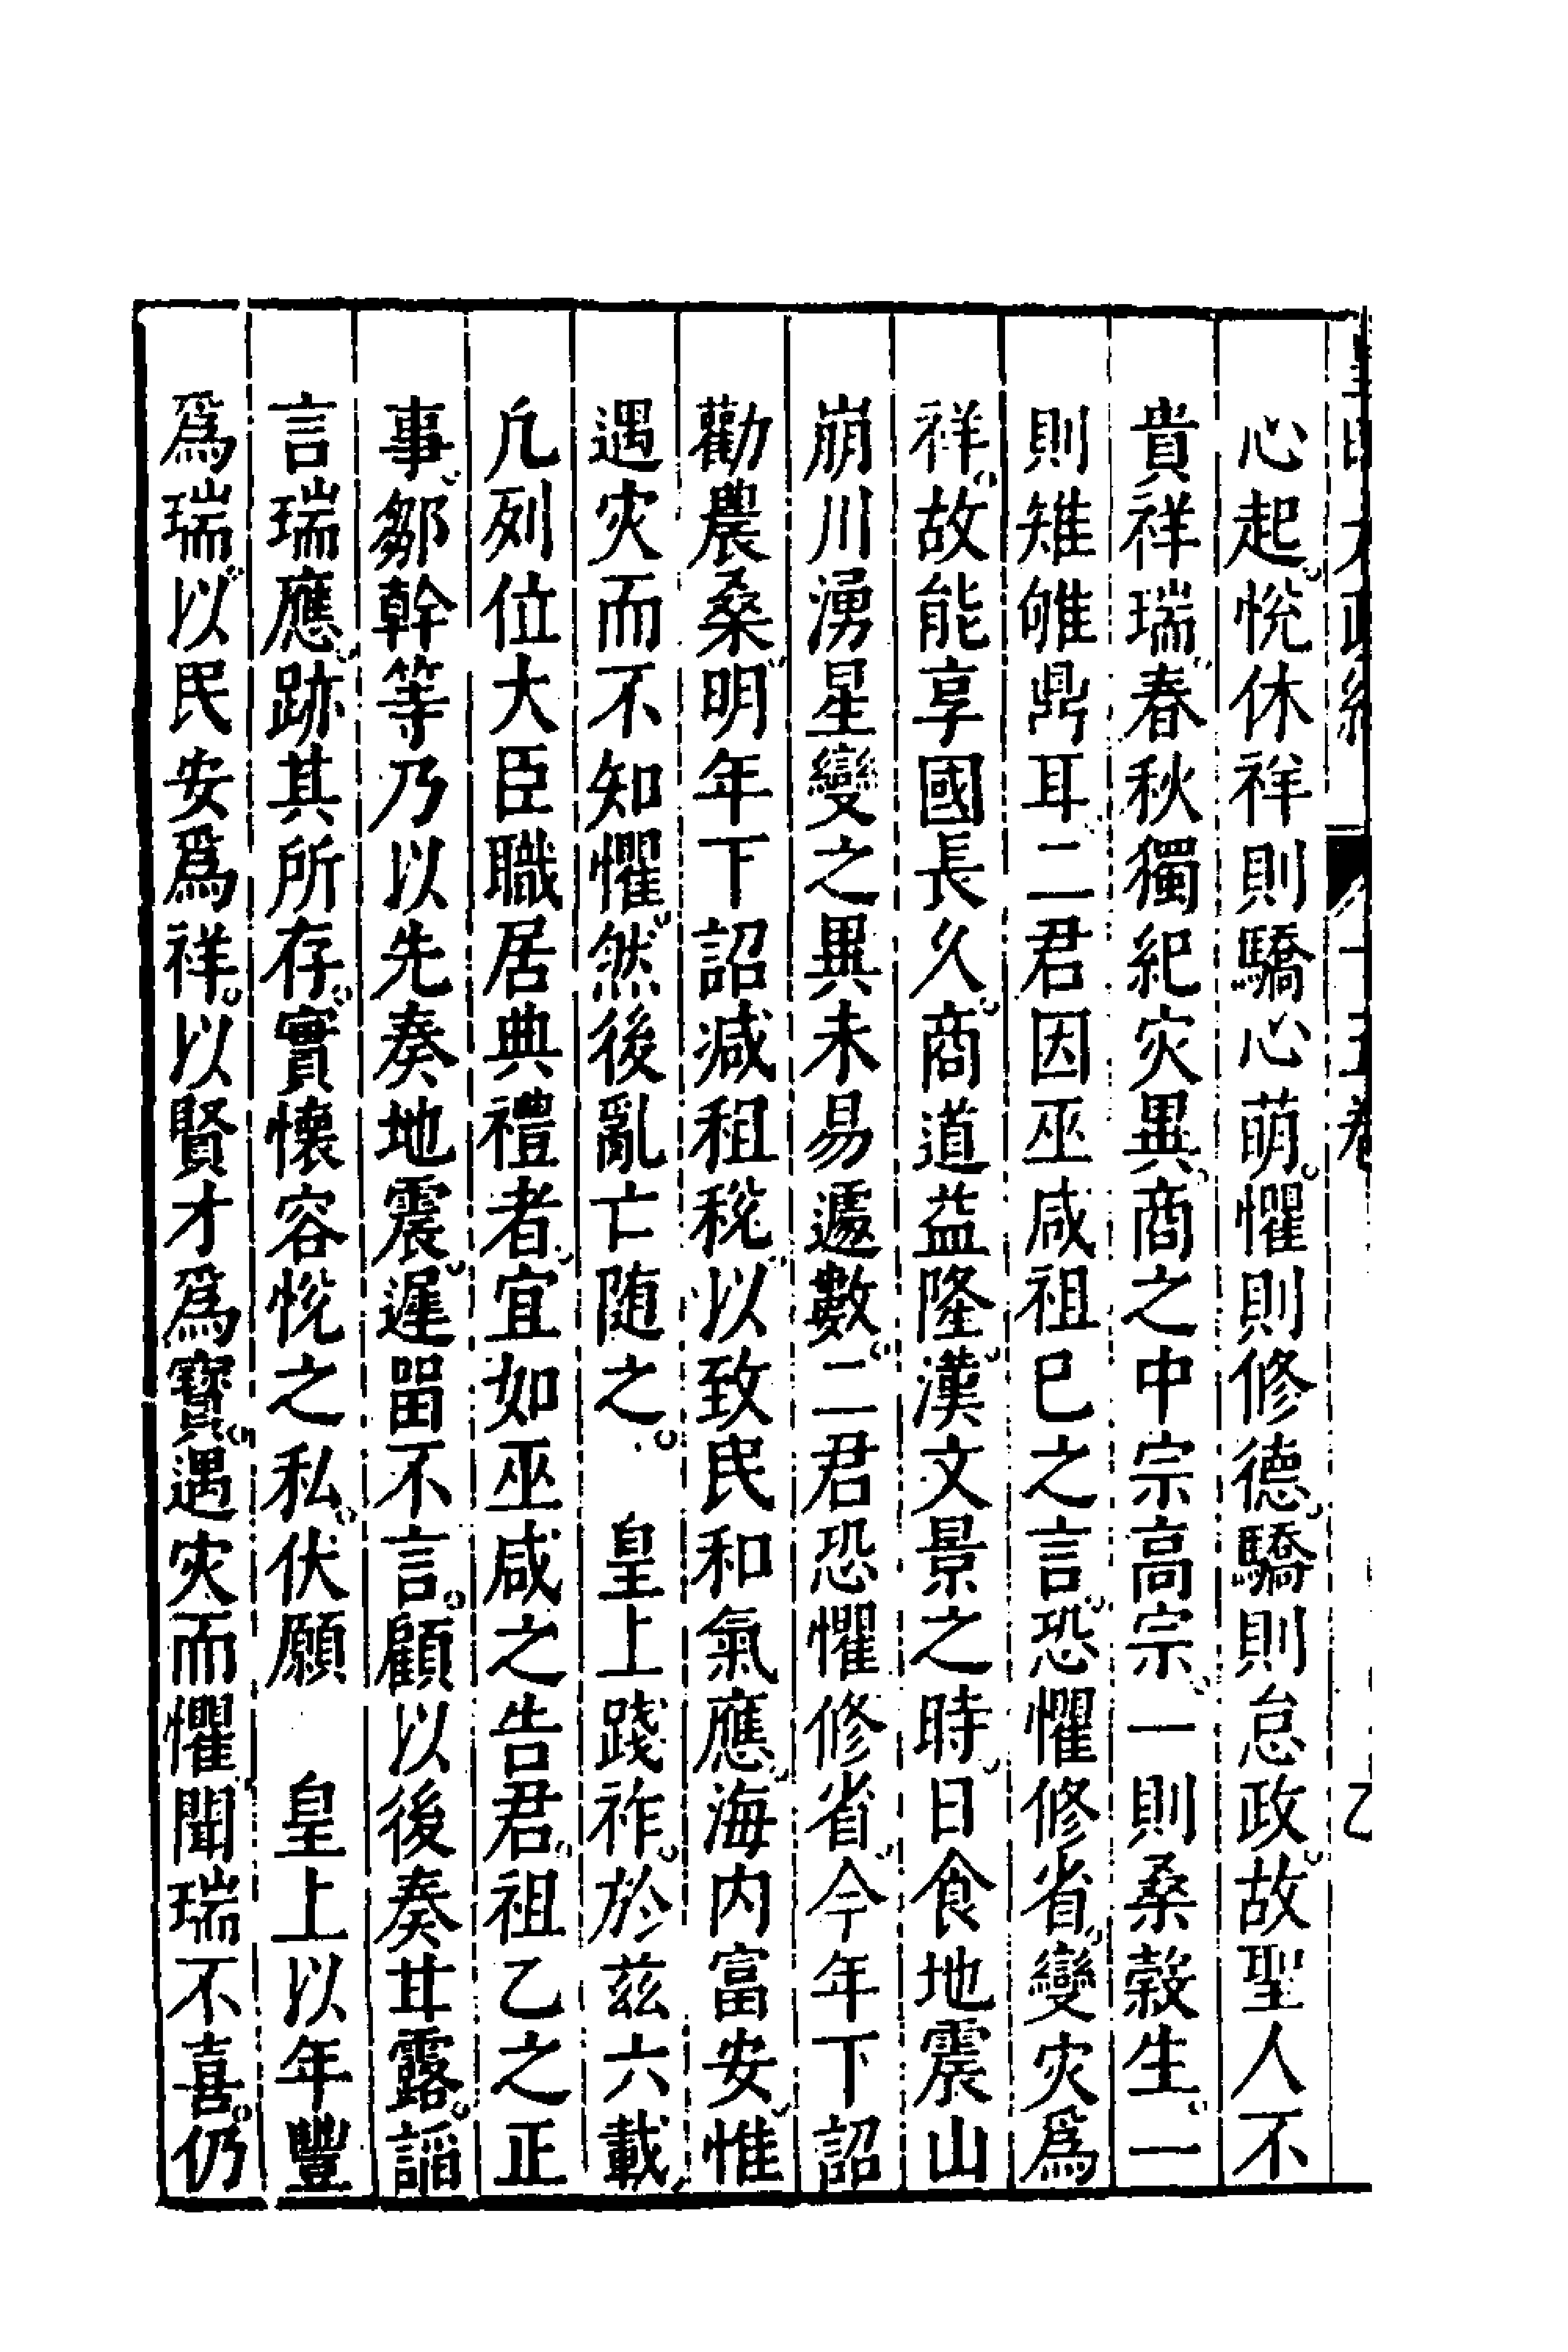 心起悅休祥則驕心萌懼則修德驕則怠政故聖人不
貴祥瑞春秋獨紀灾異商之中宗高宗一則桑穀生一
則雉雊鼎耳二君因巫咸祖已之言恐懼修省變灾爲
祥故能享國長久商道益隆漢文景之時日食地震山
崩川湧星變之異未易遽數二君恐懼修省今年下詔
勸農桑明年下詔减租稅以致民和氣應海内富安惟
遇灾而不知懼然後亂亡随之　皇上踐祚於兹六載
凢列位大臣職居典禮者宜如巫咸之告君祖乙之正
事鄒幹等乃以先奏地震遲畱不言顧以後奏甘露謟
言瑞應跡其所存實懷容悅之私伏願　皇上以年豐
爲瑞以民安爲祥以賢才爲寳遇灾而懼聞瑞不喜仍
十五卷